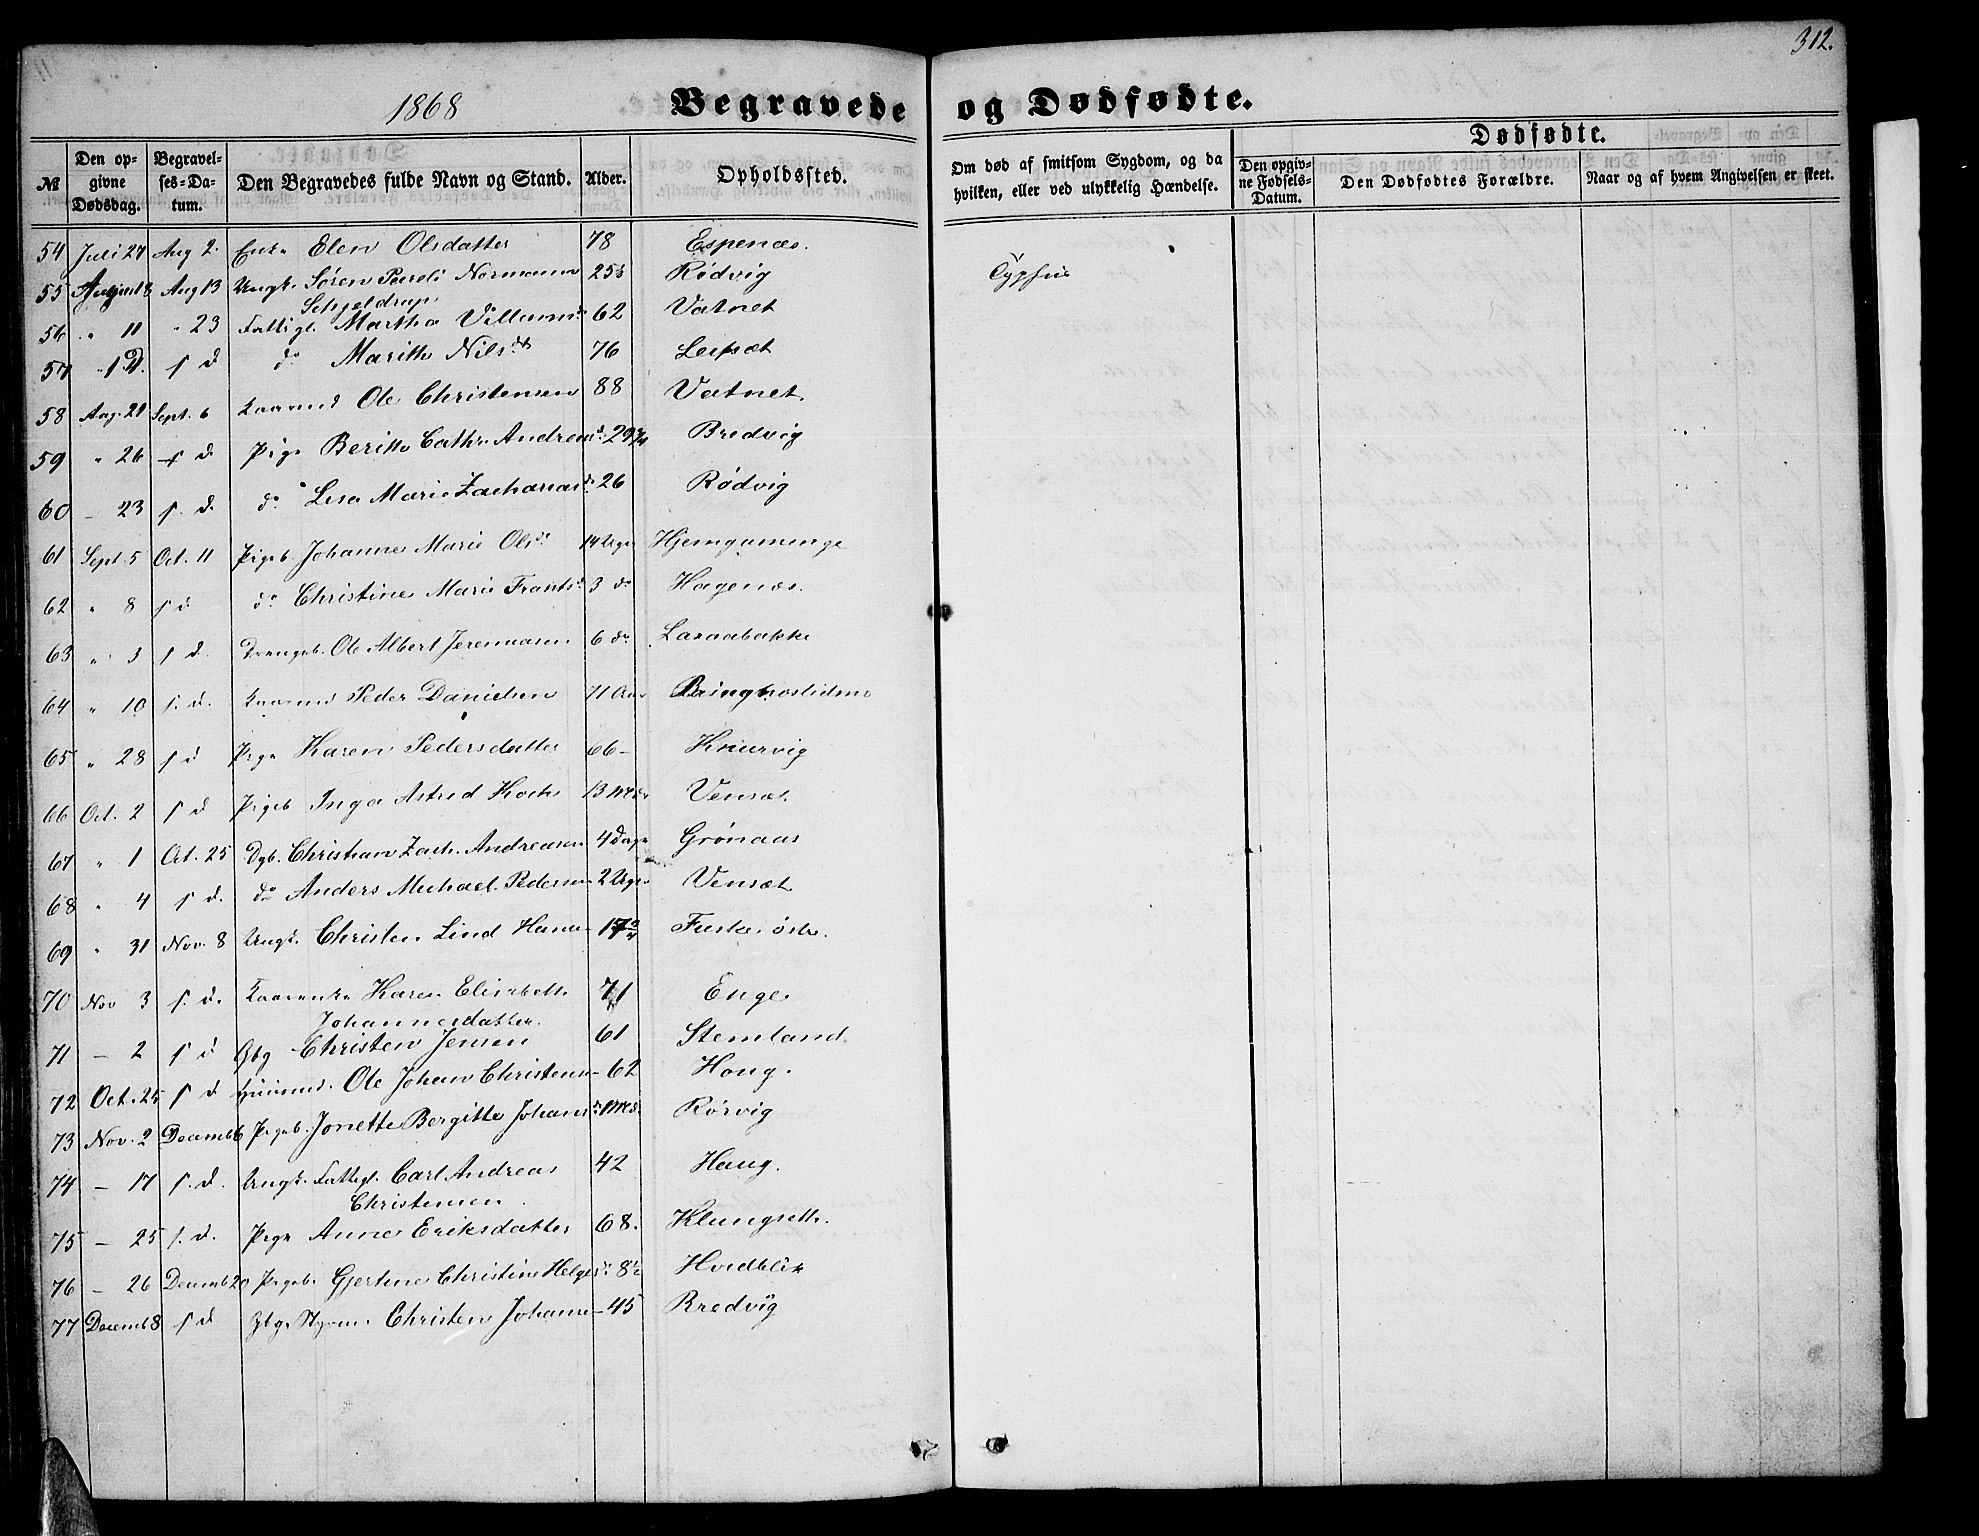 312.
1868 Begravede og Dødfødte.
Dødfødte.
№ Den opgivne Dødsdag. Begravelses-Datum. Den Begravedes fulde Navn og Stand. Alder. Opholdssted. Om død af smitsom Sygdom, og da hvilken, eller ved ulykkelig Hændelse. Den opgivne Fødsels-Datum. Den Dødfødtes Forældre. Naar og af hvem Angivelsen er skeet.
54 Juli 27 Aug 2. Enke Elen Olsdatter 78 Espenæs.
55 August 8 Aug 13 Ungk. Søren Normann 25 Rødvig Typhus
Schjeldrup
56 " 11 " 23 Fattigl. Martha Villums d. 62 Vatnet
57 s d do Marith Nils dt 76 Leifsæt
58 Aug. 21 Sept. 6 Kaarmd Ole Christensen 88 Vatnet
59 " 26 s d. Pige Beritte Cathr. Andreas d. 29 Bredvig
60 – 23 s. d. do Lisa Marie Zacharias d. 26 Rødvig
61 Sept. 5 Oct. 11 Pigeb. Johanne Marie Ols d. 14 Uger Hjemgamenge
62 " 8 s d do Christine Marie Frants d. 3 do Hagenæs.
63 " 3 s d. Drengeb. Ole Albert Jeremiasen 6 do Laxaabakke
64 " 10 s. d. Kaarmd Peder Danielsen 71 Aar
65 " 28 s d Pige Karen Pedersdatter 66 – Knurvig
66 Oct. 2 s d Pigeb Inga Astrid Koch 13 Mdr Vensæt
67 " 1 Oct. 25 Dgb. Christian Zach. Andreasen 4 Dage Grønaas
68 " 4 s d. do Anders Michael Pedersen 2 Uger Vensæt
69 " 31 Nov. 8 Ungk. Christen Lind Hans– 17 Fuske østre.
70 Nov 3 s. d. Kaarenke Karen Elisabeth 71 Enge.
Johannesdatter.
71 – 2 s d Gbg Christen Jensen 61 Stemland.
72 Oct. 25 s d Huusmd. Ole Johan Christens– 62 Houg.
73 Nov. 2 Decemb 6 Pigeb. Jonette Bergitte Johans d. 1 Md. Rørvig
74 – 17 s. d. Ungk. Fattigl. Carl Andreas 42 Haug.
Christensen.
75 – 25 s. d. Pige Anne Eriksdatter 68. Klungseth.
76 – 26 Decemb 20 Pigeb. Gjertine Christine Helges d. 8½ Hvidblik
77 Decemb 8 s d Gbg. Christen Johans– 45 Bredvig